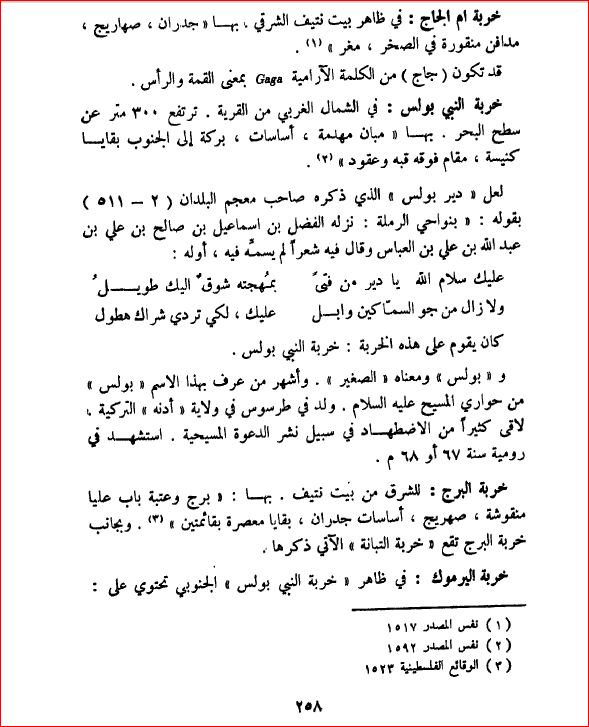 خربة ام الحاج : في ظاهر بيت نتيف الشرقي . بهـا « جدران ، صهاريج ،
مدافن منقورة في الصخر ، مغر » (١) .
قد تكون ( جاج ) من الكلمة الآرامية Gaga بمعنى القمة والرأس .
خربة النبي بولس : في الشمال الغربي من القرية . ترتفع ٣٠٠ متر عن
سطح البحر . بهـا « مبان مهدمة ، أساسات ، بركة إلى الجنوب بقايـا
كنيسة ، مقام فوقه قبه وعقود » (٢) .
لعل « دير بولس » الذي ذكره صاحب معجم البلدان ( ٢ – ٥١١ )
بقوله : « بنواحي الرملة : نزله الفضل بن اسماعيل بن صالح بن علي بن
عبد الله بن علي بن العباس وقال فيه شعراً لم يسمّه فيه ، أوله :
عليك سلام الله يا دير من فتىً بمُهجته شوقٌ اليك طويـــلُ
ولا زال من جو السمّاكين وابـل عليك ، لكي تردي شراك هطول
كان يقوم على هذه الخربة : خربة النبي بولس .
و « بولس » ومعناه « الصغير » . وأشهر من عرف بهذا الاسم « بولس »
من حواري المسيح عليه السلام . ولد في طرسوس في ولاية « أدنه » التركية .
لاقى كثيراً من الاضطهـاد في سبيل نشر الدعوة المسيحية . استشهـد في
رومية سنة ٦٧ أو ٦٨ م .
خربة البرج : للشرق من بيت نتيف . بهـا : « برج وعتبة باب عليا
منقوشة ، صهريج ، أساسات جدران ، بقايا معصرة بقائمتين » (٣) . وبجانب
خربة البرج تقع « خربة التبانة » الآتي ذكرها .
خربة اليرموك : في ظاهر « خربة النبي بولس » الجنوبي تحتوي على :
(١) نفس المصدر ١٥١٧
(٢) نفس المصدر ١٥٩٢
(٣) الوقائع الفلسطينية ١٥٢٣
٢٥٨